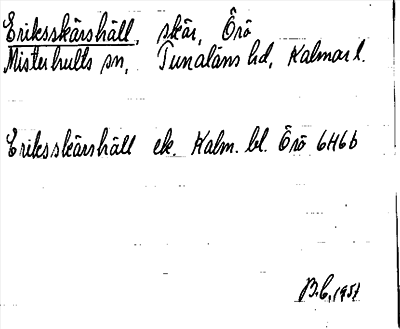 Eriksskärshäll, skär, Örö
Misterhults sn, Tunaläns hd, Kalmar l.
Eriksskärshäll ek. Kalm. bl. Örö 6H6b
B.C, 1951